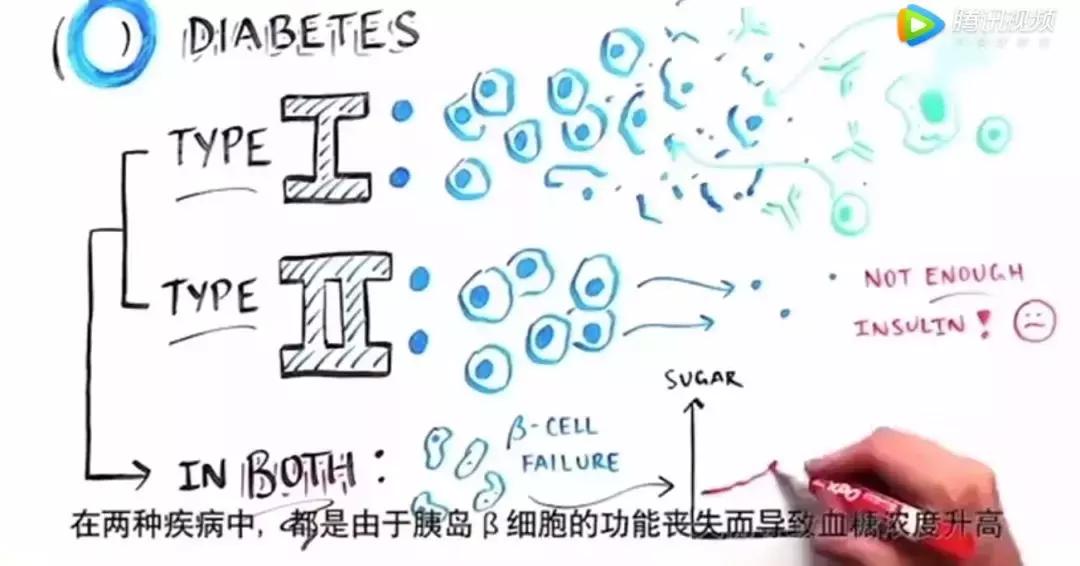 腾讯视频
DIABETES
TYPE I :
TYPE II :
NOT ENOUGH
INSULIN! 
SUGAR
IN BOTH :
β-CELL
FAILURE
在两种疾病中，都是由于胰岛 β 细胞的功能丧失而导致血糖浓度升高